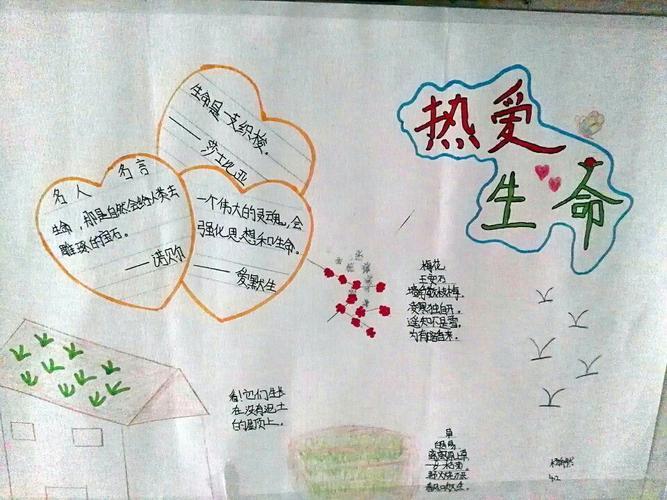 热爱
生命
生命是一支织梭。
——莎士比亚
名人 名言
生命，那是自然会给人类去
雕琢的宝石。
——诺贝尔
一个伟大的灵魂，会
强化思想和生命。
——爱默生
梅花
王安石
墙角数枝梅，
凌寒独自开。
遥知不是雪，
为有暗香来。
看！它们生长
在没有泥土
的屋顶上。
草
一岁一枯荣
野火烧不尽
春风吹又生